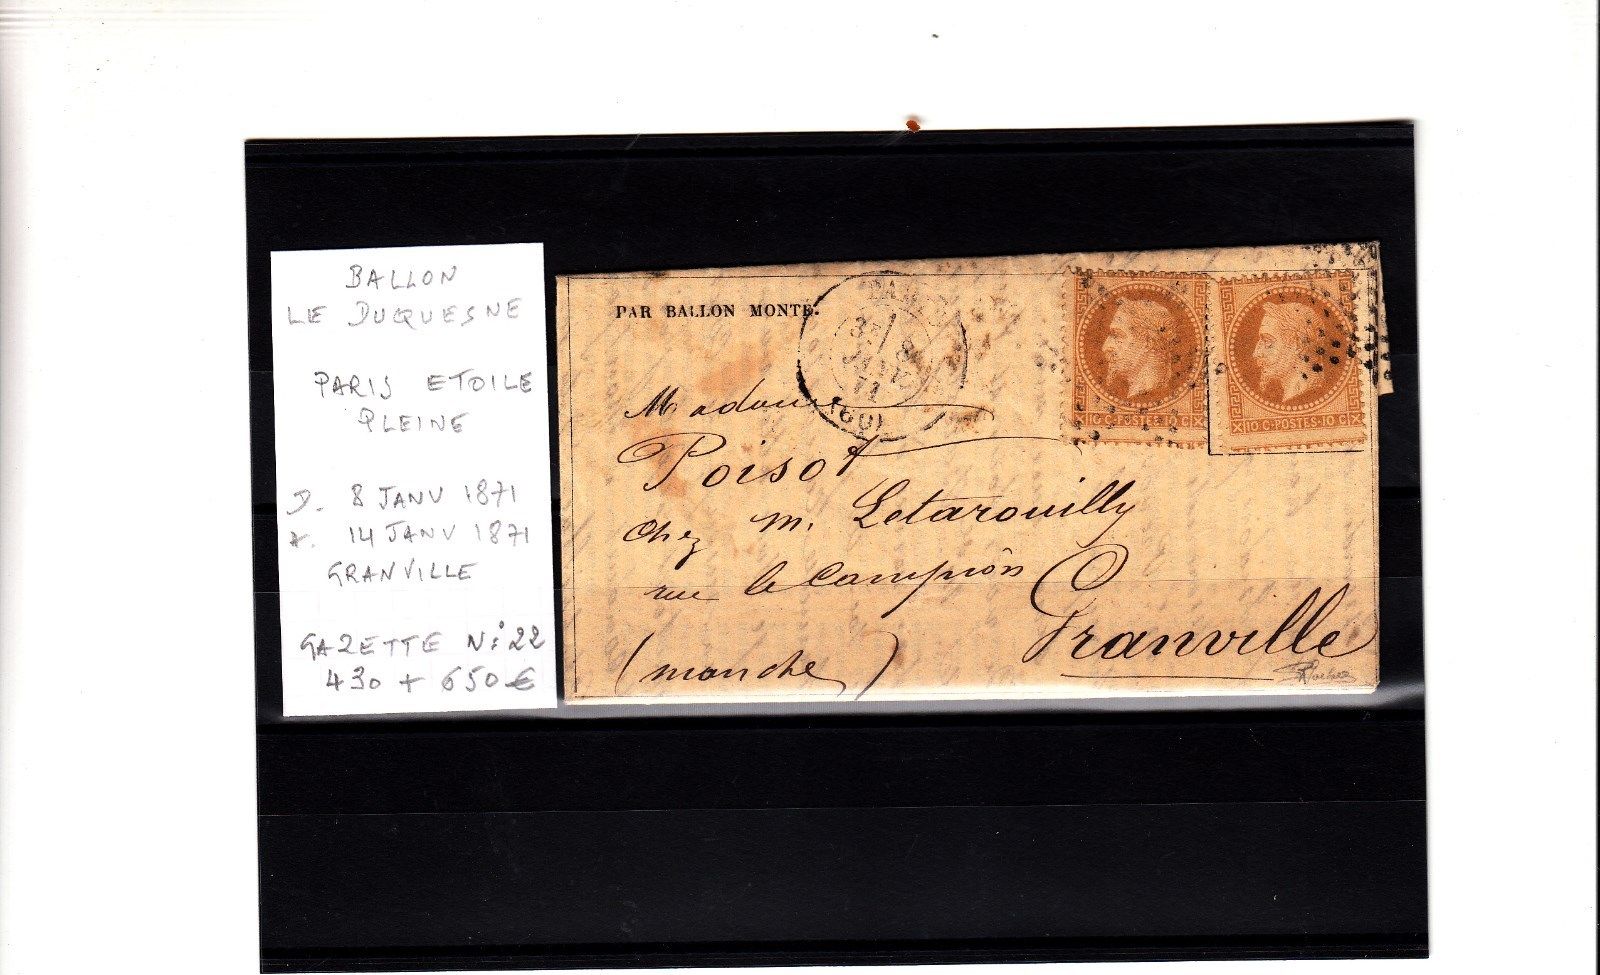 BALLON
LE DUQUESNE
PARIS ETOILE
PLEINE
D. 8 JANV 1871
A. 14 JANV 1871
GRANVILLE
GAZETTE N° 22
430 + 650 €
PAR BALLON MONTÉ.
PARIS
3E 8
JANV
71
(60)
10 C·POSTES·10 C
10 C·POSTES·10 C
Madame
Poisot
chez m. Letarouilly
rue le Campion
Granville
(manche)